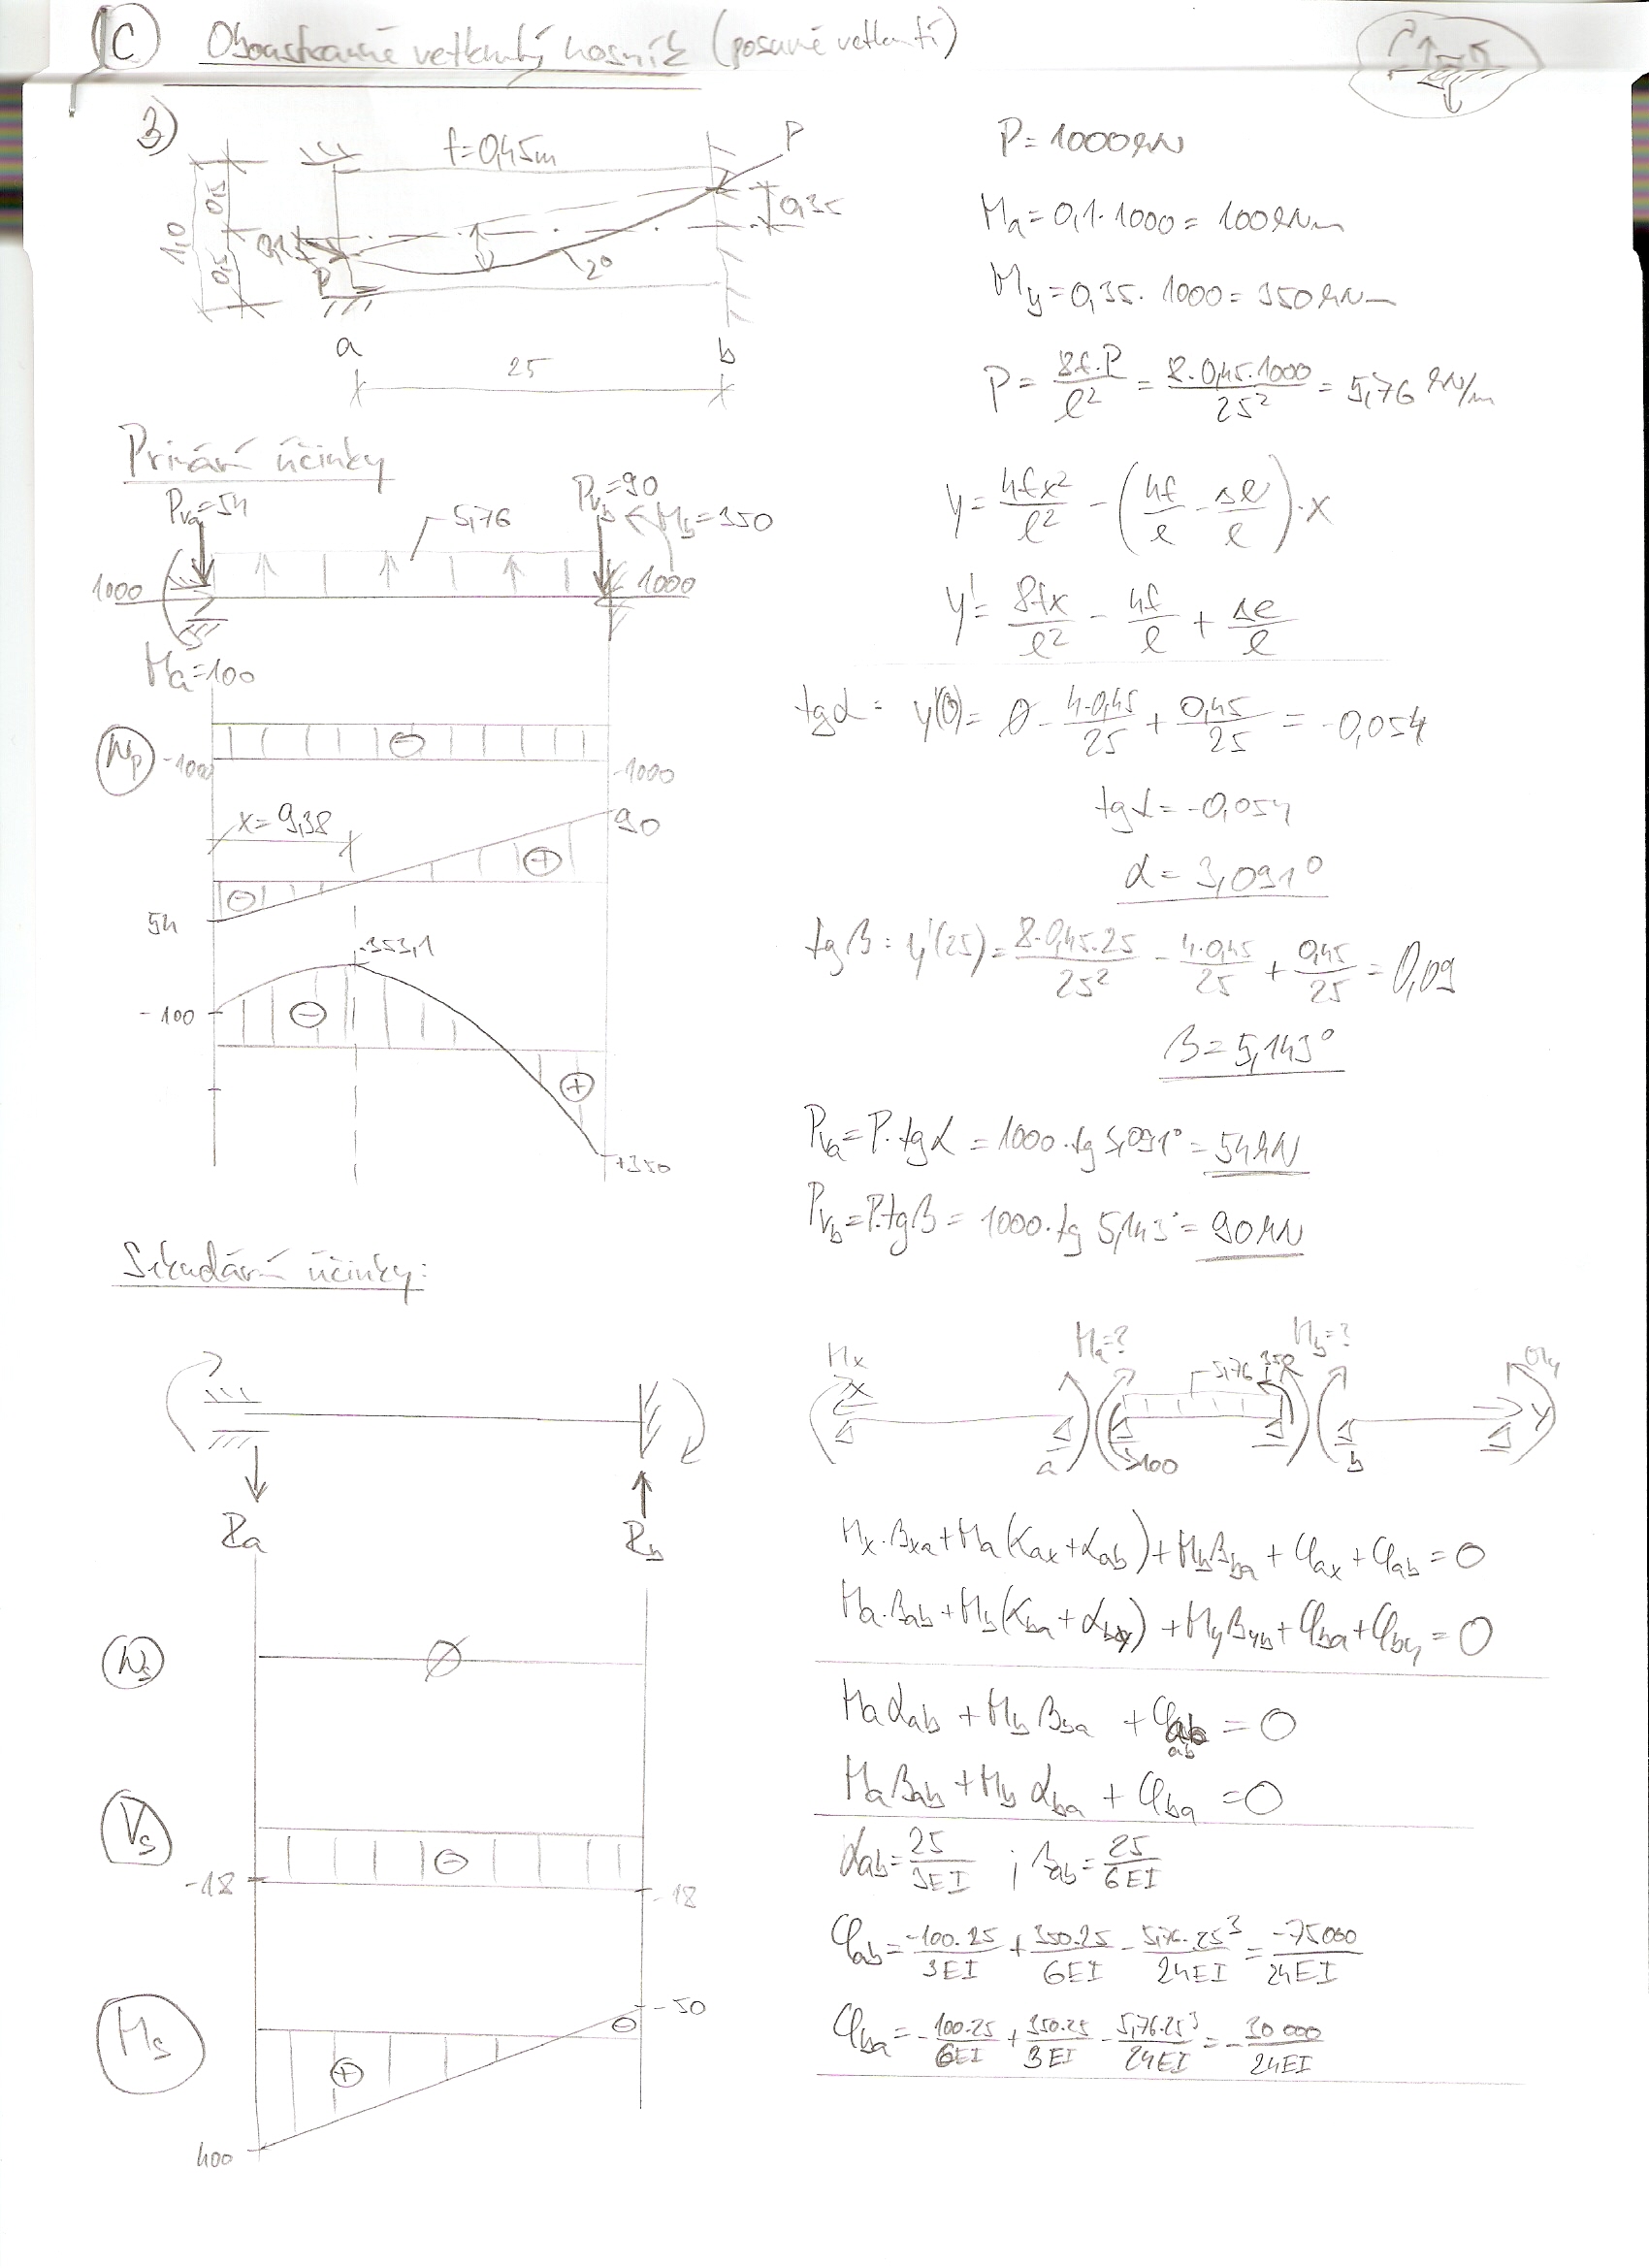 C) Oboustranně vetknutý nosník (posuvné vetknutí)
3)
f=0,45m
P
0,5
0,5
1,0
0,1
P
0,35
2°
a
b
25
P = 1000kN
Ma = 0,1 · 1000 = 100kNm
My = 0,35 · 1000 = 350kNm
P = 8f.P / l² = 8·0,45·1000 / 25² = 5,76 kN/m
Primární účinky
Pva=54
Pvb=90
Mb=350
5,76
1000
1000
Ma=100
y = 4fx² / l² - (4f / l - Δe / l)·x
y' = 8fx / l² - 4f / l + Δe / l
Np
-1000
-1000
tgα = y'(0) = 0 - 4·0,45 / 25 + 0,45 / 25 = -0,054
tgα = -0,054
α = 3,091°
x = 9,38
90
54
-
+
tgβ = y'(25) = 8·0,45·25 / 25² - 4·0,45 / 25 + 0,45 / 25 = 0,09
β = 5,143°
-353,1
-100
-
+
+350
Pva = P·tgα = 1000·tg 3,091° = 54kN
Pvb = P·tgβ = 1000·tg 5,143° = 90kN
Sekudární účinky:
Ra
Rb
Mx
x
Ma=?
5,76
350
Mb=?
My
y
a
100
b
Mx·βxa + Ma(αax+αab) + Mbβba + φax + φab = 0
Ma·βab + Mb(αba+αby) + Myβyb + φba + φby = 0
Ns
Ø
Maαab + Mbβba + φab = 0
ab
Maβab + Mbαba + φba = 0
Vs
-
-18
-18
αab = 25 / 3EI ; βab = 25 / 6EI
φab = -100·25 / 3EI + 350·25 / 6EI - 5,76·25³ / 24EI = -75000 / 24EI
Ms
-50
-
+
400
φba = - 100·25 / 6EI + 350·25 / 3EI - 5,76·25³ / 24EI = - 30 000 / 24EI